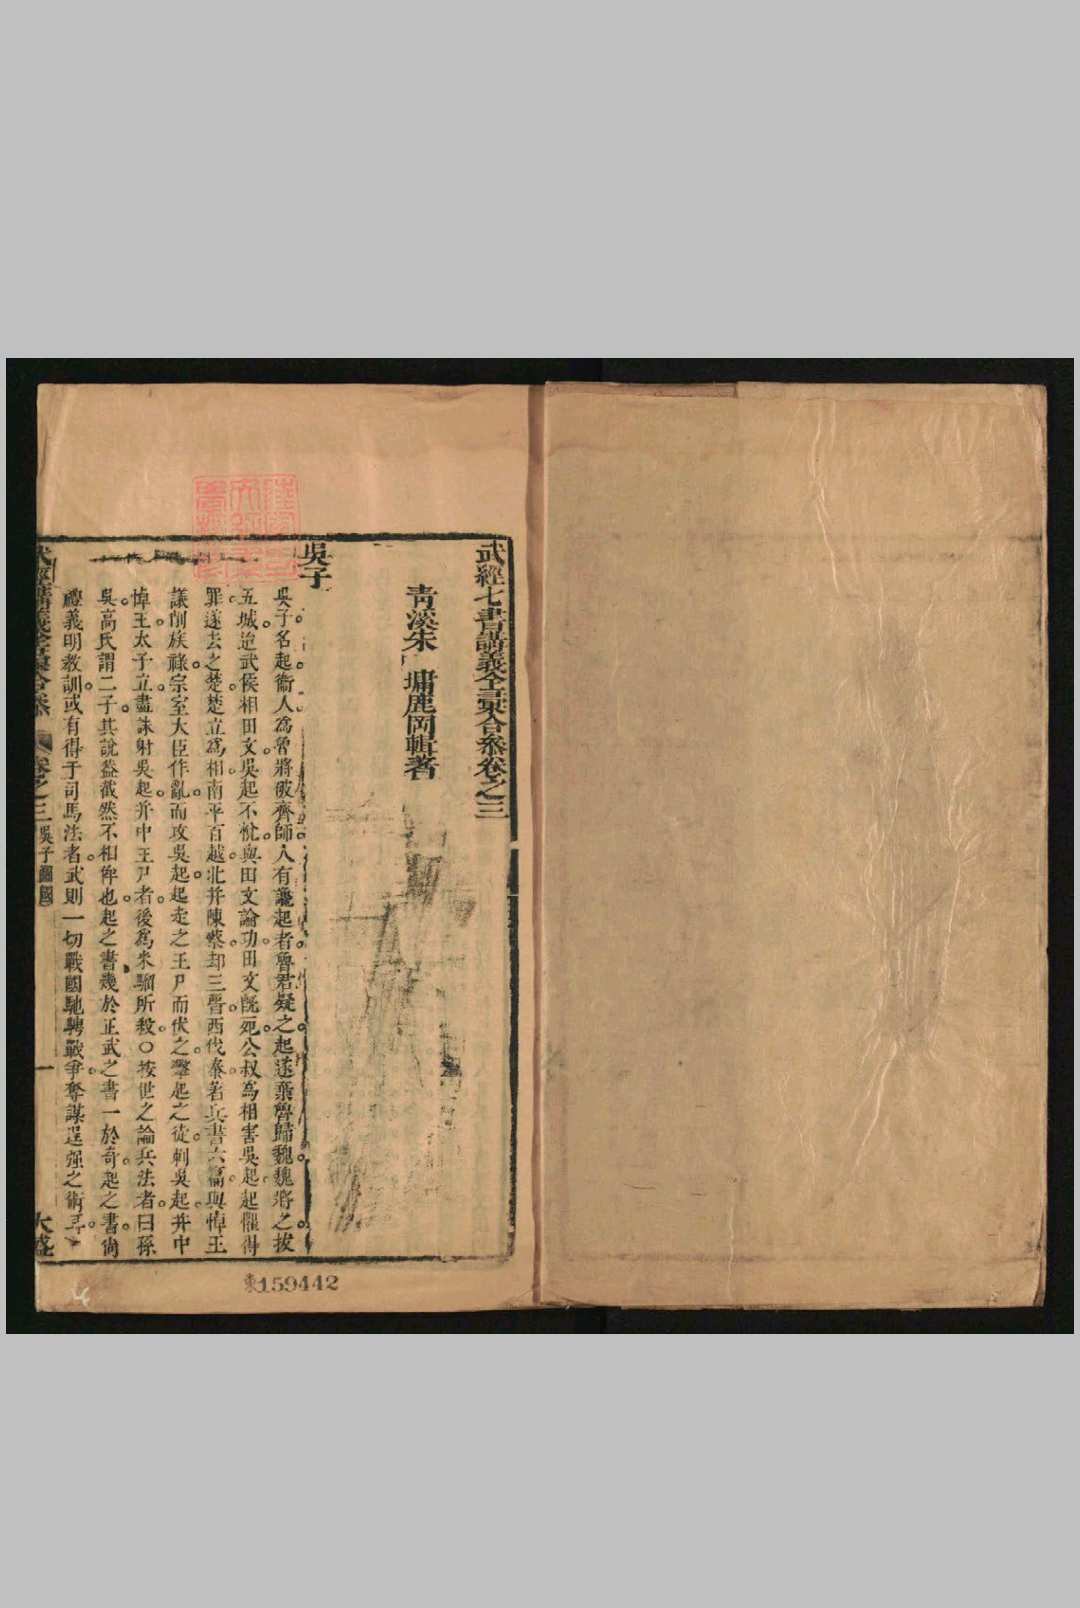 武經七書講義全彙合參卷之三
青溪朱墉鹿岡輯著
吳子
吳子名起衞人爲魯將破齊師人有讒起者魯君疑之起遂棄魯歸魏魏將之拔
五城迨武侯相田文吳起不悅與田文論功田文既死公叔爲相害吳起起懼得
罪遂去之楚楚立爲相南平百越北并陳蔡却三晉西伐秦著兵書六篇與悼王
議削族祿宗室大臣作亂而攻吳起起走之王尸而伏之擊起之徒刺吳起并中
悼王太子立盡誅射吳起并中王尸者後爲米騶所殺○按世之論兵法者曰孫
吳高氏謂二子其說葢截然不相侔也起之書幾於正武之書一於奇起之書尙
禮義明教訓或有得于司馬法者武則一切戰國馳騁戰爭奪謀逞强之術耳
武經講義全彙合參 卷之三 吳子 圖國 一 大盛
東159442